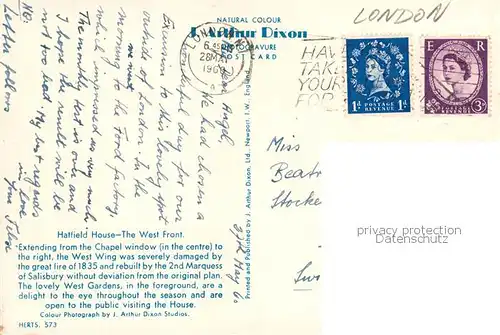 NATURAL COLOUR
J. Arthur Dixon
PHOTOGRAVURE
POST CARD
LONDON
LONDON
6.45
28 MAY
196
HAV
TAKE
YOUR
FOR
1D POSTAGE REVENUE 1D
E R
POSTAGE REVENUE 3D
Angel,
We had chosen a
beautiful day for our
Excursion to this lovely spot
outside of London. In the
morning we went to the Ford factory,
which impressed us very much
The monthly test is over and
I hope the result will be
not too bad. My best regards
in love
Your
NO.
Letter follows
27th May 6
Printed and Published by J. Arthur Dixon, Ltd., Newport, I.W., England.
Miss
Beat
Stocke
Sw
privacy protection
Datenschutz
Hatfield House—The West Front.
Extending from the Chapel window (in the centre) to
the right, the West Wing was severely damaged by
the great fire of 1835 and rebuilt by the 2nd Marquess
of Salisbury without deviation from the original plan.
The lovely West Gardens, in the foreground, are a
delight to the eye throughout the season and are
open to the public visiting the House.
Colour Photograph by J. Arthur Dixon Studios.
HERTS. 573